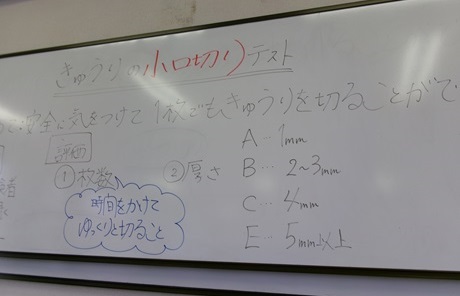 きゅうりの小口切りテスト
安全に気をつけて1枚でもきゅうりを切ることがで
評価
①枚数
時間をかけて
ゆっくりと切ること
②厚さ
A…1mm
B…2~3mm
C…4mm
E…5mm以上